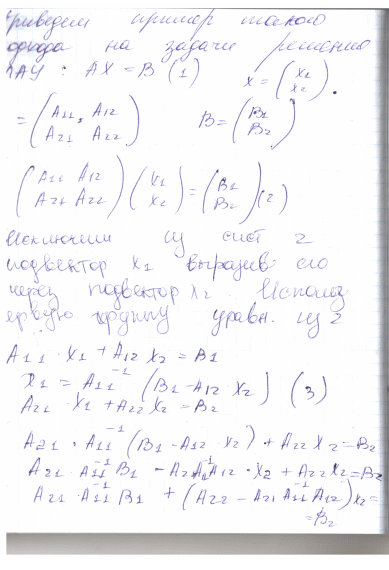 приведем пример такого
одхода на задачи решения
ЛАУ: AX = B (1) x = (x1 x2).
= (A11, A12 A21 A22) B = (B1 B2)
(A11 A12 A21 A22) (x1 x2) = (B1 B2) (2)
Исключим из сист 2
подвектор x1 выразив его
через подвектор x2. Использ
ервую группу уравн. из 2
A11 · x1 + A12 x2 = B1
x1 = A11^-1 (B1 - A12 · x2) (3)
A21 · x1 + A22 x2 = B2
A21 · A11^-1 (B1 - A12 · x2) + A22 x2 = B2
A21 · A11^-1 B1 - A21 A11^-1 A12 · x2 + A22 x2 = B2
A21 · A11^-1 B1 + (A22 - A21 A11^-1 A12) x2 =
= B2